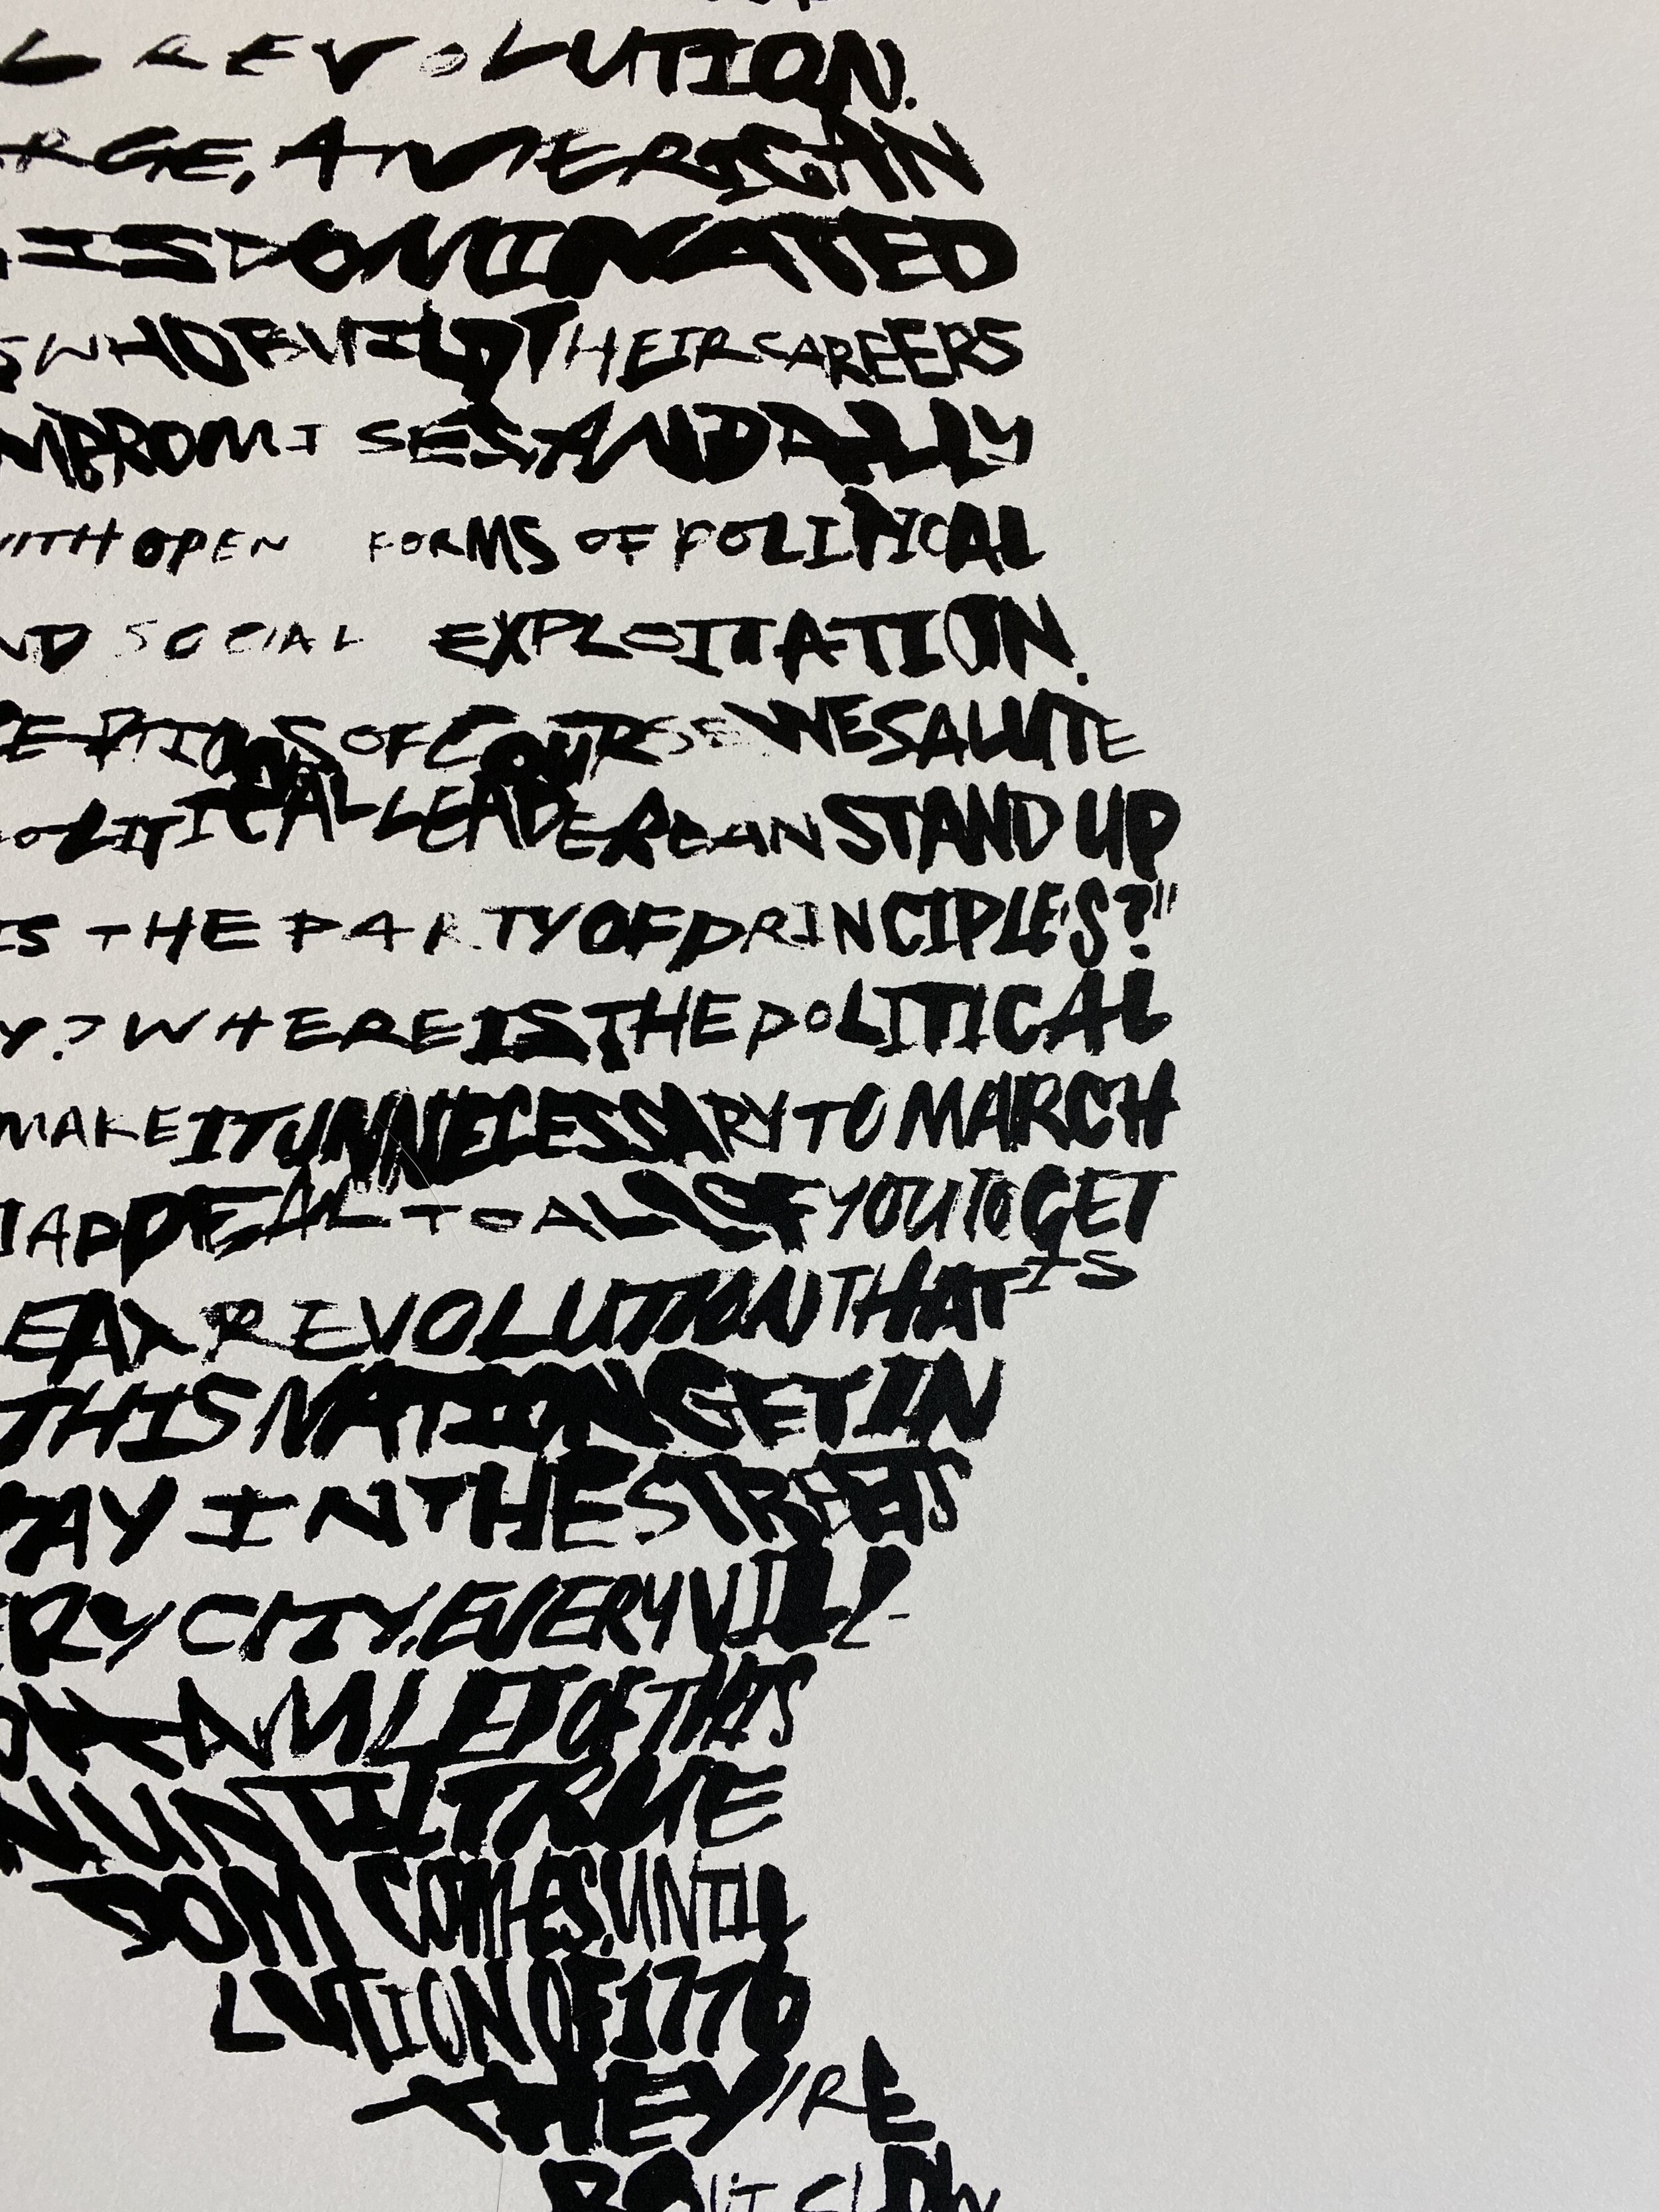 L REVOLUTION.
RGE, AMERICAN
IS DOMINATED
S WHO BUILD THEIR CAREERS
MPROMISES AND ALLY
WITH OPEN FORMS OF POLITICAL
ND SOCIAL EXPLOITATION.
CEPTIONS OF COURSE WE SALUTE
OLITICAL LEADER CAN STAND UP
IS THE PARTY OF PRINCIPLES?"
Y? WHERE IS THE POLITICAL
MAKE IT UNNECESSARY TO MARCH
I APPEAL TO ALL OF YOU TO GET
EAT REVOLUTION THAT IS
THIS NATION GET IN
TAY IN THE STREETS
ERY CITY, EVERY VILL-
HAMLET OF THIS
N UNTIL TRUE
DOM COMES, UNTIL
LUTION OF 1776
THEY'RE